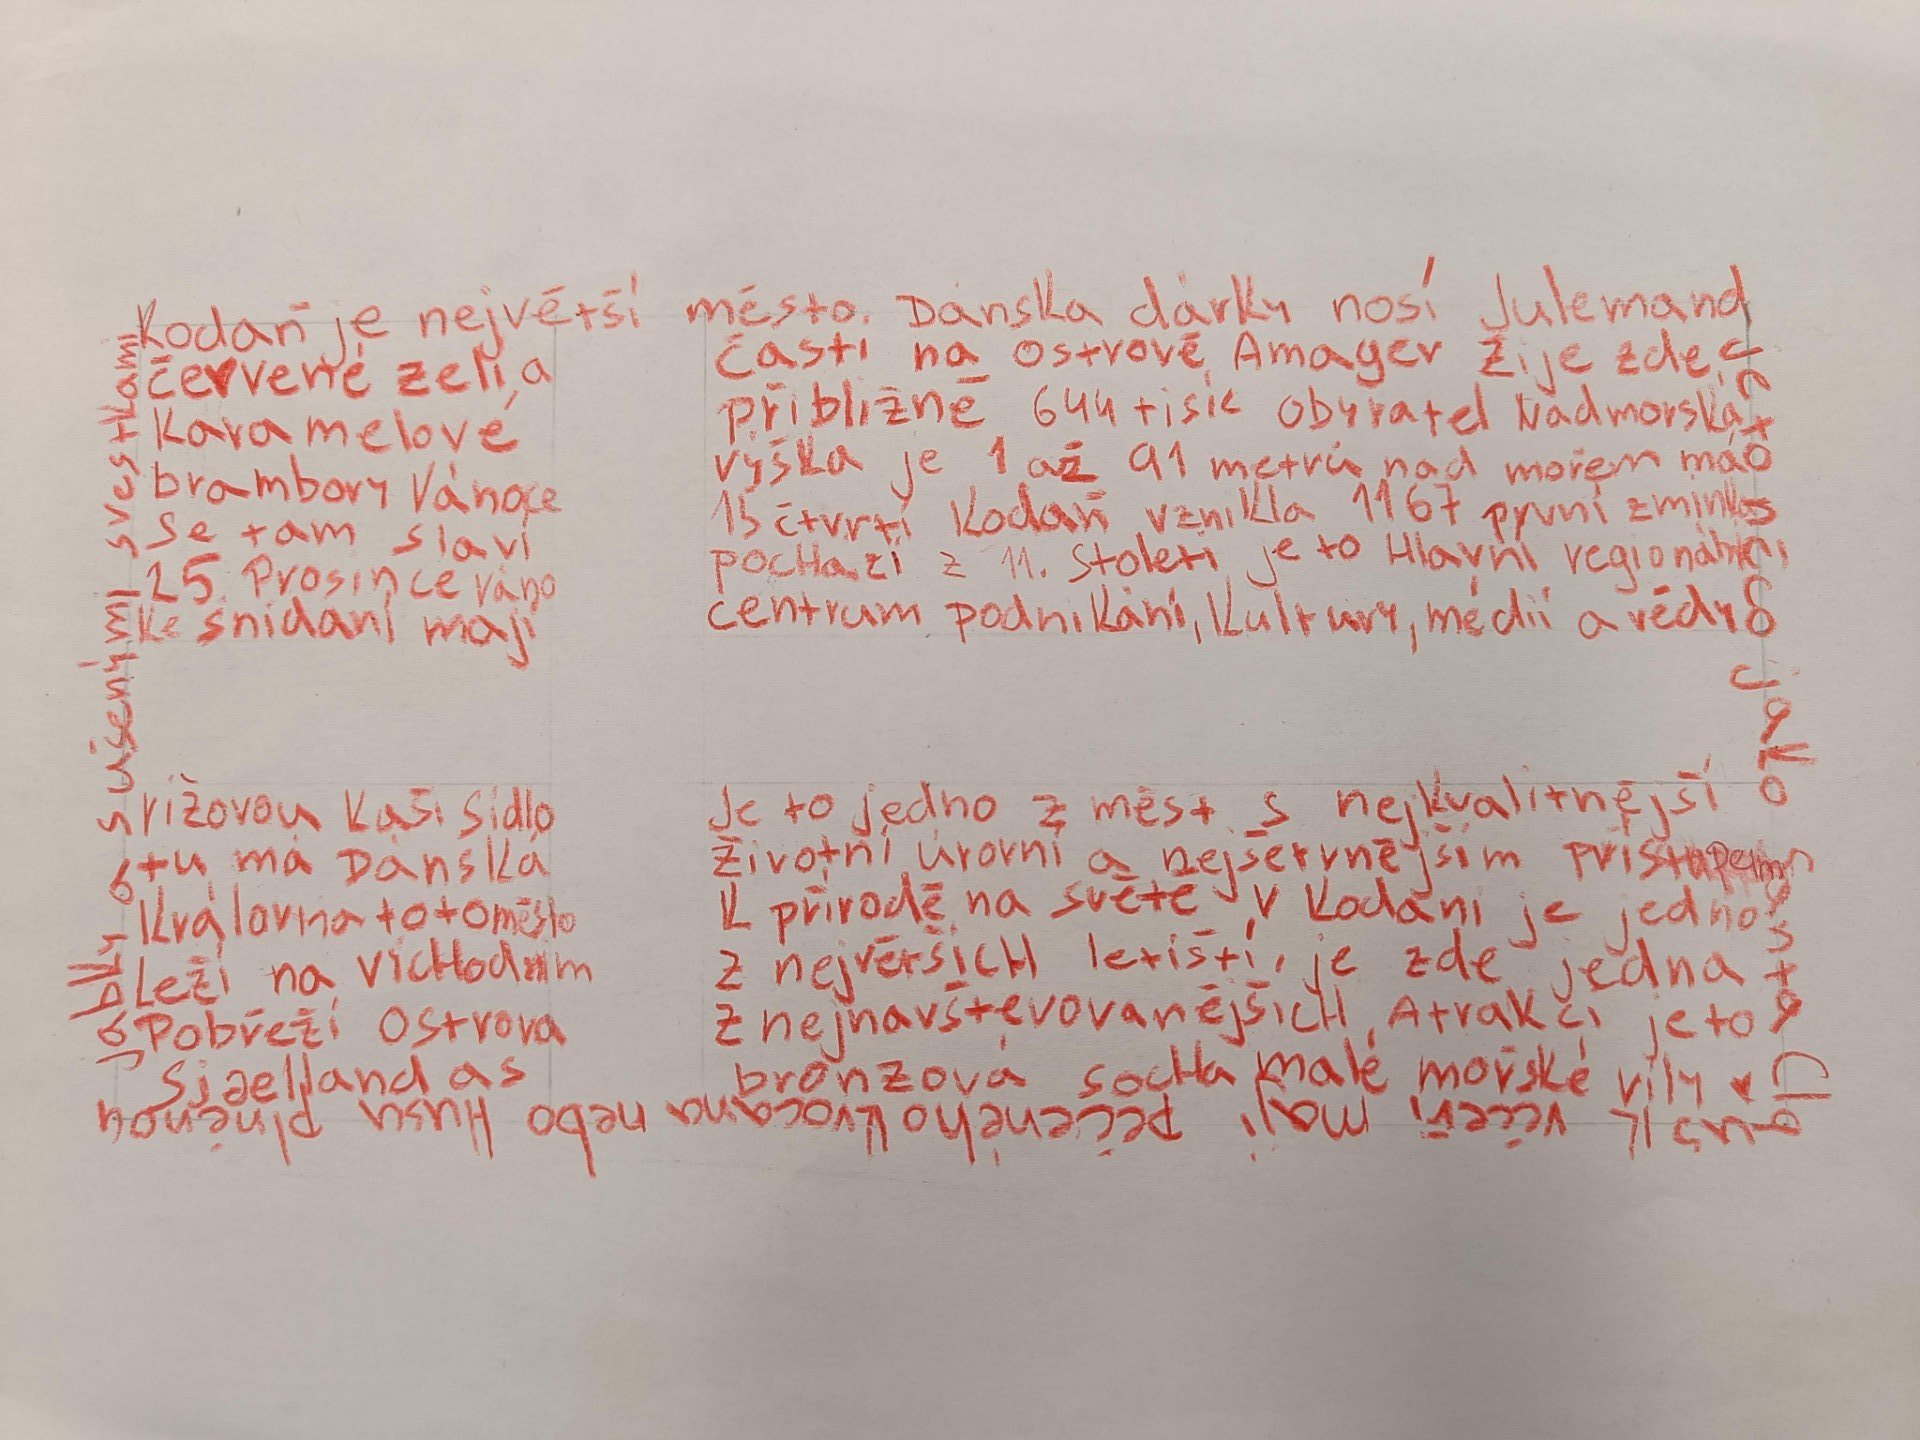 Kodaň je největší město. Dánska dárky nosí Julemand
jako
večeři mají pečeného krocana nebo Husu plněnou
jablky s sušenými svestkami
červené zelí, a
Karamelové
brambory Vánoce
se tam slaví
25. Prosince váno
ke snídaní mají
rížovou Kaši Sídlo
tu má Dánská
Královna toto město
Leží na vícHodním
Pobřeží Ostrova
Sjaelland as
části na ostrově Amager žije zde
přibližně 644 tisíc obyvatel Nadmorská
výška je 1 až 91 metrů nad mořem má
15 čtvrtí Kodaň vznikla 1167 první zmínka
pocHazí z 11. Století, je to Hlavní regionální
centrum podnikání, Kultury, médií a vědy
Je to jedno z měst s nejkvalitnější
životní úrovní a nejšetrnějším přístupem
K přírodě na světě v Kodani je jedno
z největšícH letišť, je zde jedna
z nejnavštěvovanějšícH Atrakcí je to
bronzová socHa malé mořské víly